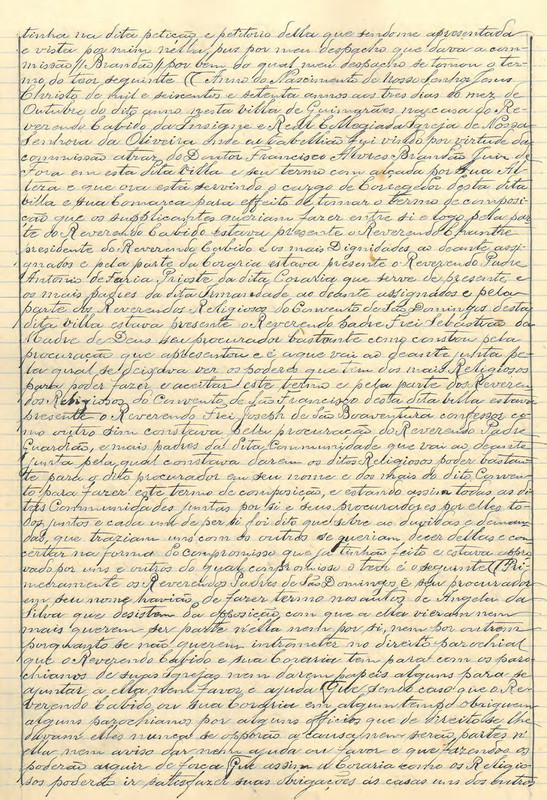 tinha na dita petição e petitorio della que sendome apresentada
e vista por mim nella puz por meu despacho que dava a com-
missão // Brandão // por bem do qual meu despacho se tomou o ter-
mo do teor seguinte // Anno do Nascimento de Nosso Senhor Jesus
Christo de mil e seiscentos e setenta annos aos tres dias do mez de
Outubro do dito anno nesta villa de Guimarães nas casas do Re-
verendo Cabido da Insigne e Real Collegiada Igreja de Nossa
Senhora da Oliveira onde eu Tabellião fui vindo por virtude da
commissão atraz do Doutor Francisco Alvres Brandão Juiz de
Fora em esta dita villa e seu termo com alçada por Sua Al-
teza e que ora está servindo o cargo de Corregedor desta dita
villa e sua Comarca para effeito de tomar o termo de composi-
ção que os supplicantes queriam fazer entre si e logo pela par-
te do Reverendo Cabido estava presente o Reverendo Chantre
presidente do Reverendo Cabido e os mais Dignidades ao deante assi-
gnados e pela parte da Coraria estava presente o Reverendo Padre
Antonio de Faria, Prioste da dita Coraria que serve de presente e
os mais padres da dita Irmandade ao deante assignados e pela
parte dos Reverendos Religiosos do Convento de São Domingos desta
dita villa estava presente o Reverendo Padre Frei Sebastião da
Madre de Deus seu procurador bastante como constou pela
procuração que apresentou e é a que vai ao deante junta pe-
la qual se deixava ver os poderes que tem dos mais Religiosos
para poder fazer e aceitar este termo e pela parte dos Reveren-
dos Religiosos do Convento de São Francisco desta dita villa estava
presente o Reverendo Frei Joseph de São Boaventura confessor co-
mo outro sim constava pela procuração do Reverendo Padre
Guardião, e mais padres da dita Communidade que vai ao deante
junta pela qual constava darem os ditos Religiosos poder bastan-
te para o dito procurador em seu nome e dos mais do dito Conven-
to para fazer este termo de composição, e estando assim todas as di-
tas Communidades juntas por si e seus procuradores por elles to-
dos juntos e cada um de per si foi dito que sobre as duvidas e deman-
das, que traziam uns com os outros se queriam decer dellas e con-
certar na forma do compromisso que já tinhão feito e estava appro-
vado por uns e outros do qual compromisso o theor é o seguinte // Pri-
meiramente os Reverendos Padres de São Domingos e seu procurador
em seu nome havião de fazer termo nos autos de Angela da
Silva que desistem da opposição com que a ella vieram nem
mais querem ser parte n'ella nem por si, nem por outrem
porquanto se não querem intrometter no direito parochial
que o Reverendo Cabido e sua Coraria tem para com os paro-
chianos de suas Igrejas nem darem papeis alguns para se
ajuntar a ella nem favor e ajuda // Que sendo caso que o Re-
verendo Cabido ou sua Coraria em algum tempo obriguem
alguns parochianos por alguns officios que de direito se lhe
devam elles nunca se opporão á causa nem serão partes n'
ella nem aviso dar nem ajuda ou favor e que fazendo-os
poderão arguir de força // Que assim a Coraria como os Religio-
sos poderão ir satisfazer suas obrigações ás casas uns dos outros